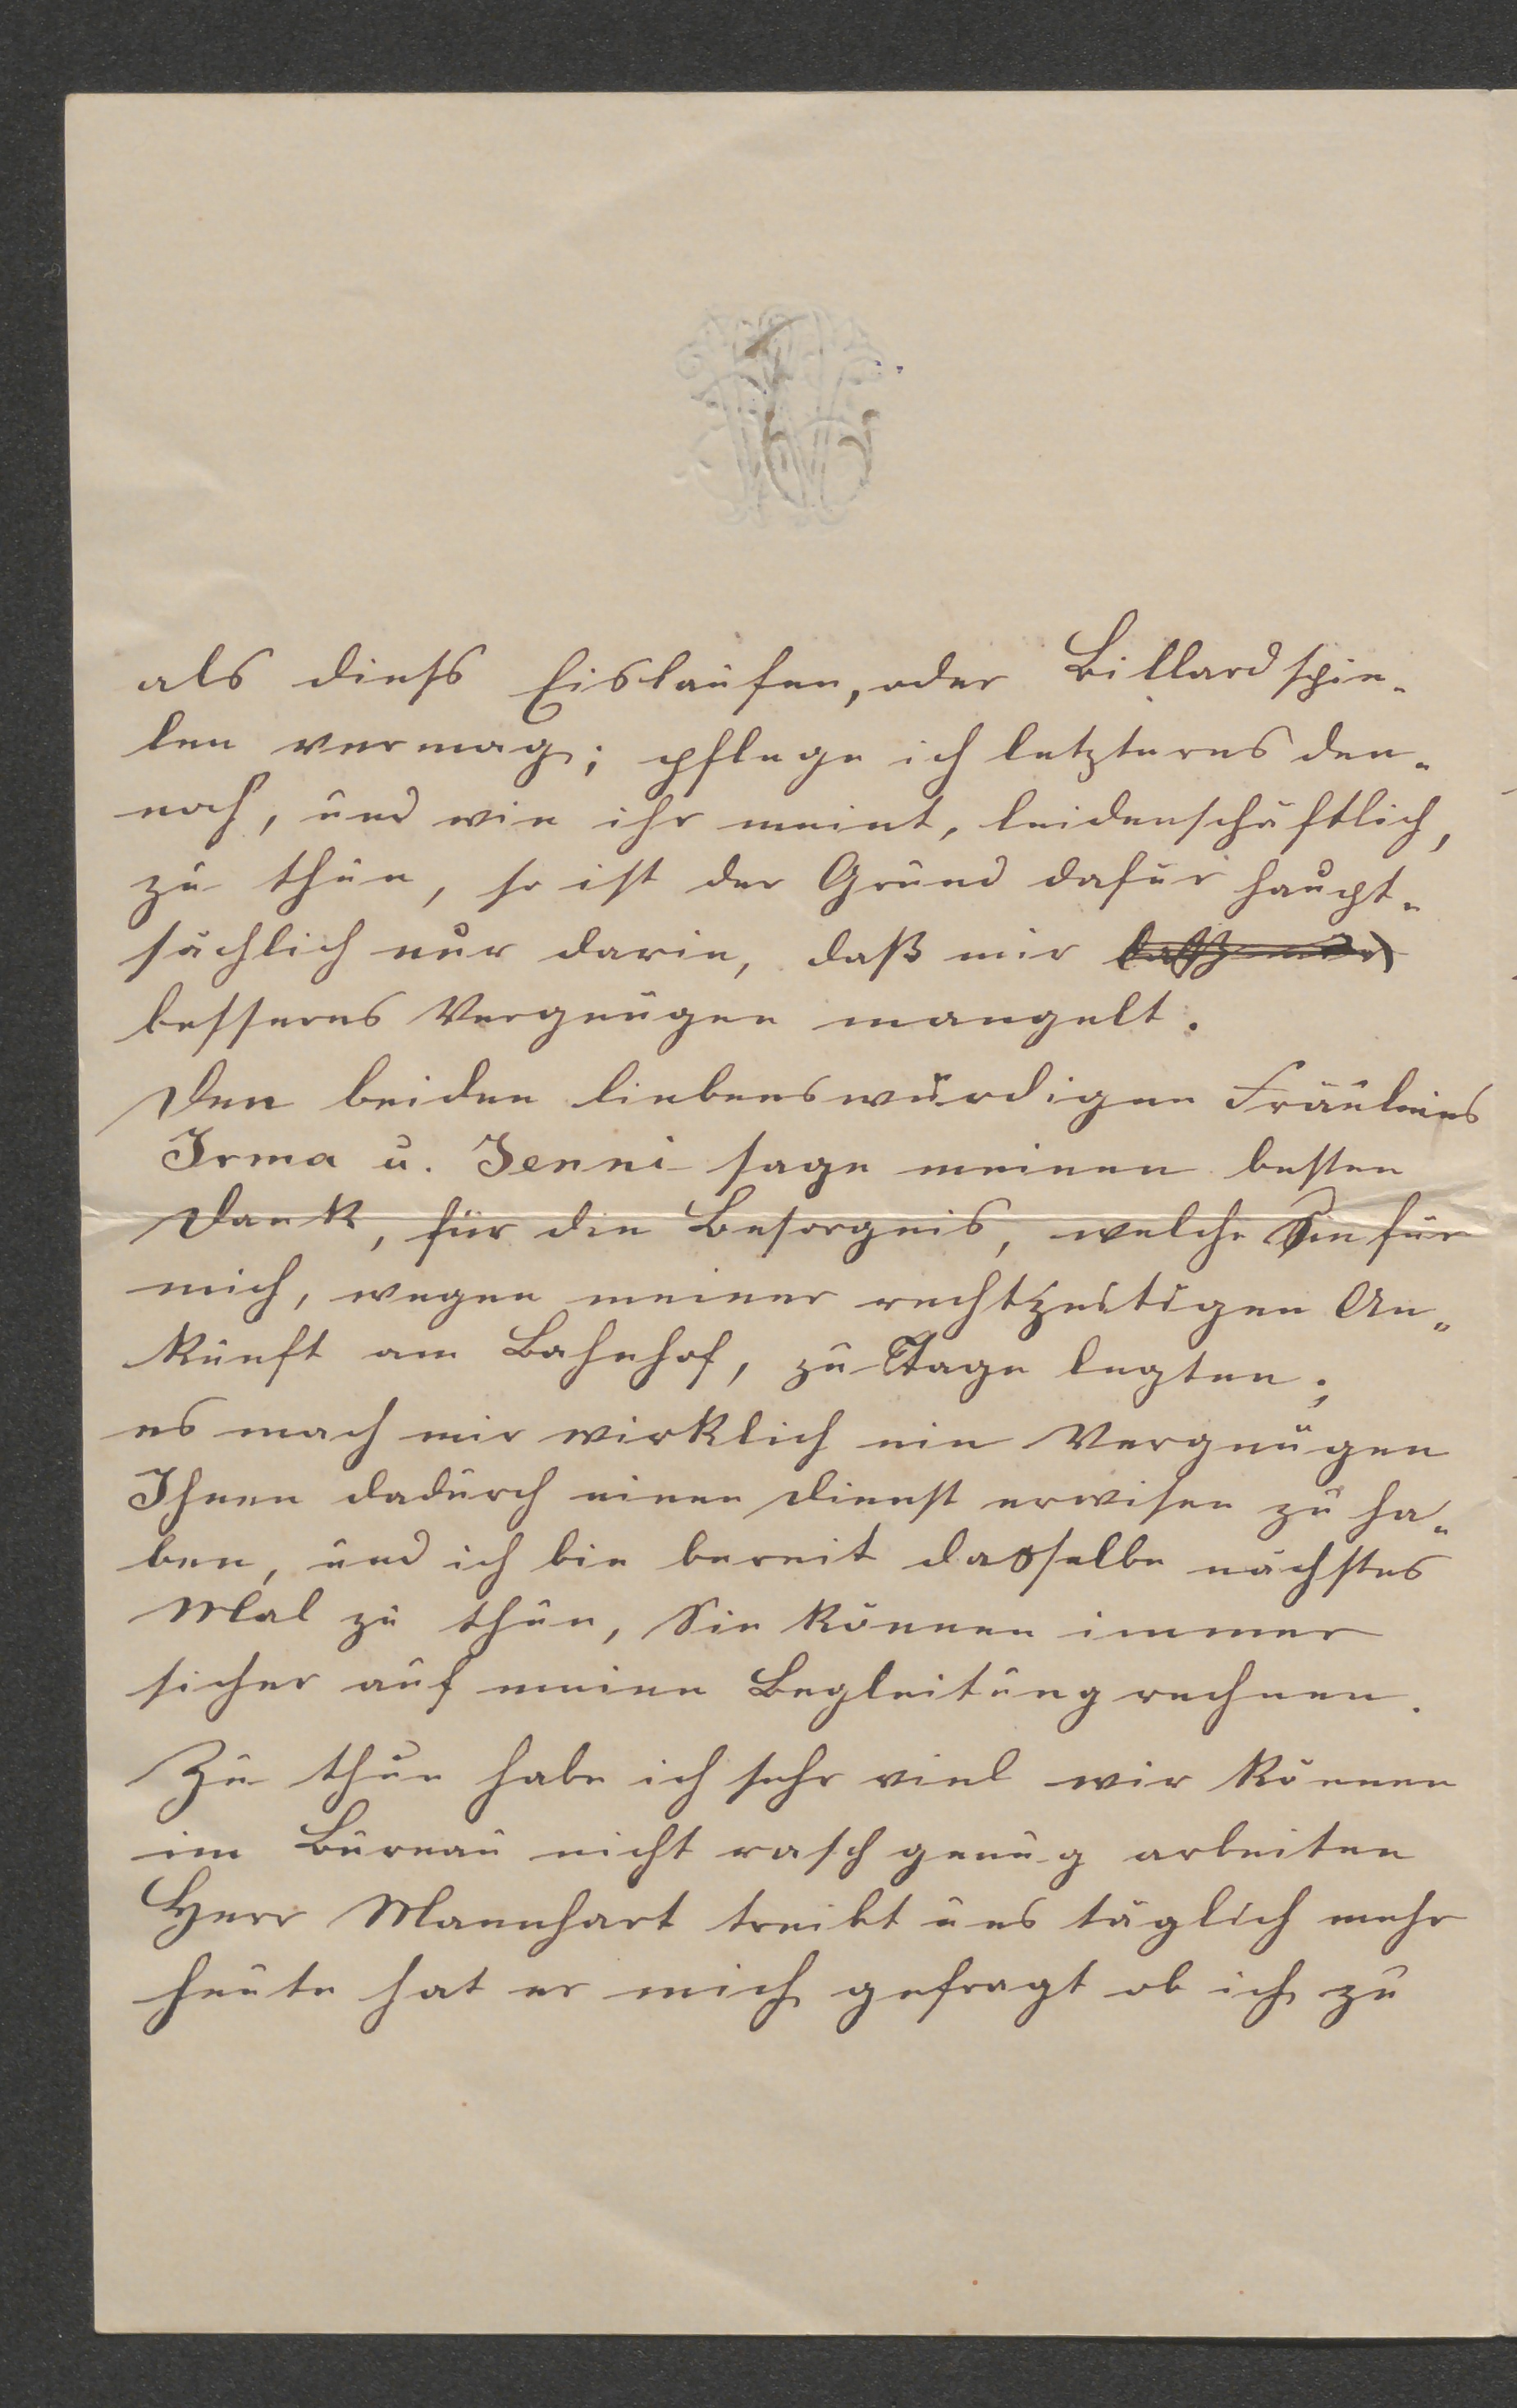 als dieses Eislaufen, oder Billardspie-
len vermag; pflege ich letzteres den-
noch, und wie ihr meint, leidenschäftlich,
zu thun, so ist der Grund dafür haupt-
sächlich nur darin, daß mir
besseres Vergnügen mangelt.
Den beiden liebenswürdigen Fräuleins
Irma u. Jenni sage meinen besten
Dank, für die Besorgnis, welche Sie für
mich, wegen meiner rechtzeitigen An-
kunft am Bahnhof, zu Tage legten;
es mach mir wirklich ein Vergnügen
Ihnen dadurch einen Dienst erwisen zu ha-
ben, und ich bin bereit dasselbe nächstes
Mal zu thun, Sie können immer
sicher auf meine Begleitung rechnen.
Zu thun habe ich sehr viel wir können
im Bureau nicht rasch genug arbeiten
Herr Mannhart treibt uns täglich mehr
heute hat er mich gefragt ob ich zu